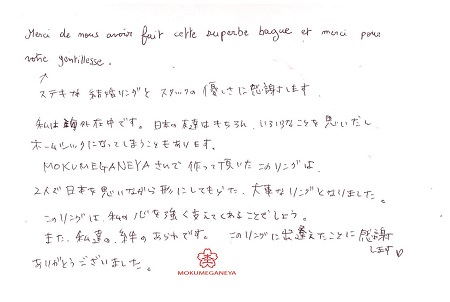 Merci de nous avoir fait cette superbe bague et merci pour
votre gentillesse.
ステキな結婚リングとスタッフの優しさに感謝します
私は海外在中です。日本の友達はもちろん、いろいろなことを思いだし
ホームシックになってしまうこともあります。
MOKUMEGANEYAさんで作って頂いたこのリングは、
2人で日本を思いながら形にしてもらた、大事なリングとなりました。
このリングは、私の心を強く支えてくれることでしょう。
また、私達の絆のあらわです。このリングに出逢えたことに感謝
します♡
ありがとうございました。
MOKUMEGANEYA